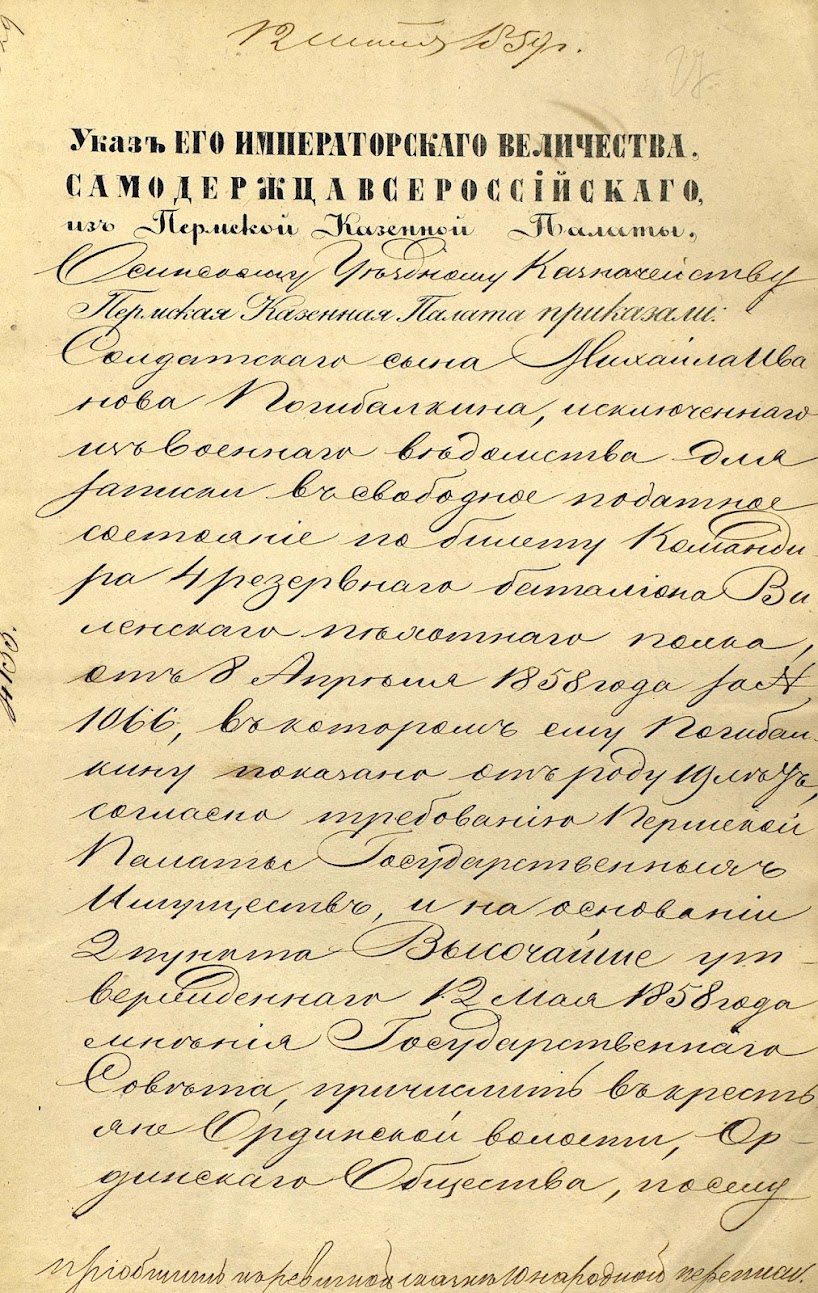 12 1859 г.
Указъ ЕГО ИМПЕРАТОРСКАГО ВЕЛИЧЕСТВА,
САМОДЕРЖЦА ВСЕРОССІЙСКАГО,
изъ Пермской Казенной Палаты,
Осинскому Уѣздному Казначейству
Пермская Казенная Палата приказали:
Солдатскаго сына Михайла Ива
нова Погибалкина, исключеннаго
изъ военнаго вѣдомства для
записки въ свободное податное
состояніе по билету Команди-
ра 4 резервнаго баталіона Ви
ленскаго пѣхотнаго полка,
отъ 8 Апрѣля 1858 года за №
1066, въ которомъ ему Погибал-
кину показано отъ роду 19 лѣтъ,
согласно требованію Пермской
Палаты Государственныхъ
Имуществъ, и на основаніи
2 пункта Высочайше ут-
вержденнаго 12 Мая 1858 года
мнѣнія Государственнаго
Совѣта, причислить въ кресть
яне Ординской волости, Ор-
динскаго Общества, посему
пріобщить къ ревизской сказкѣ 10 народной переписи.
4155.